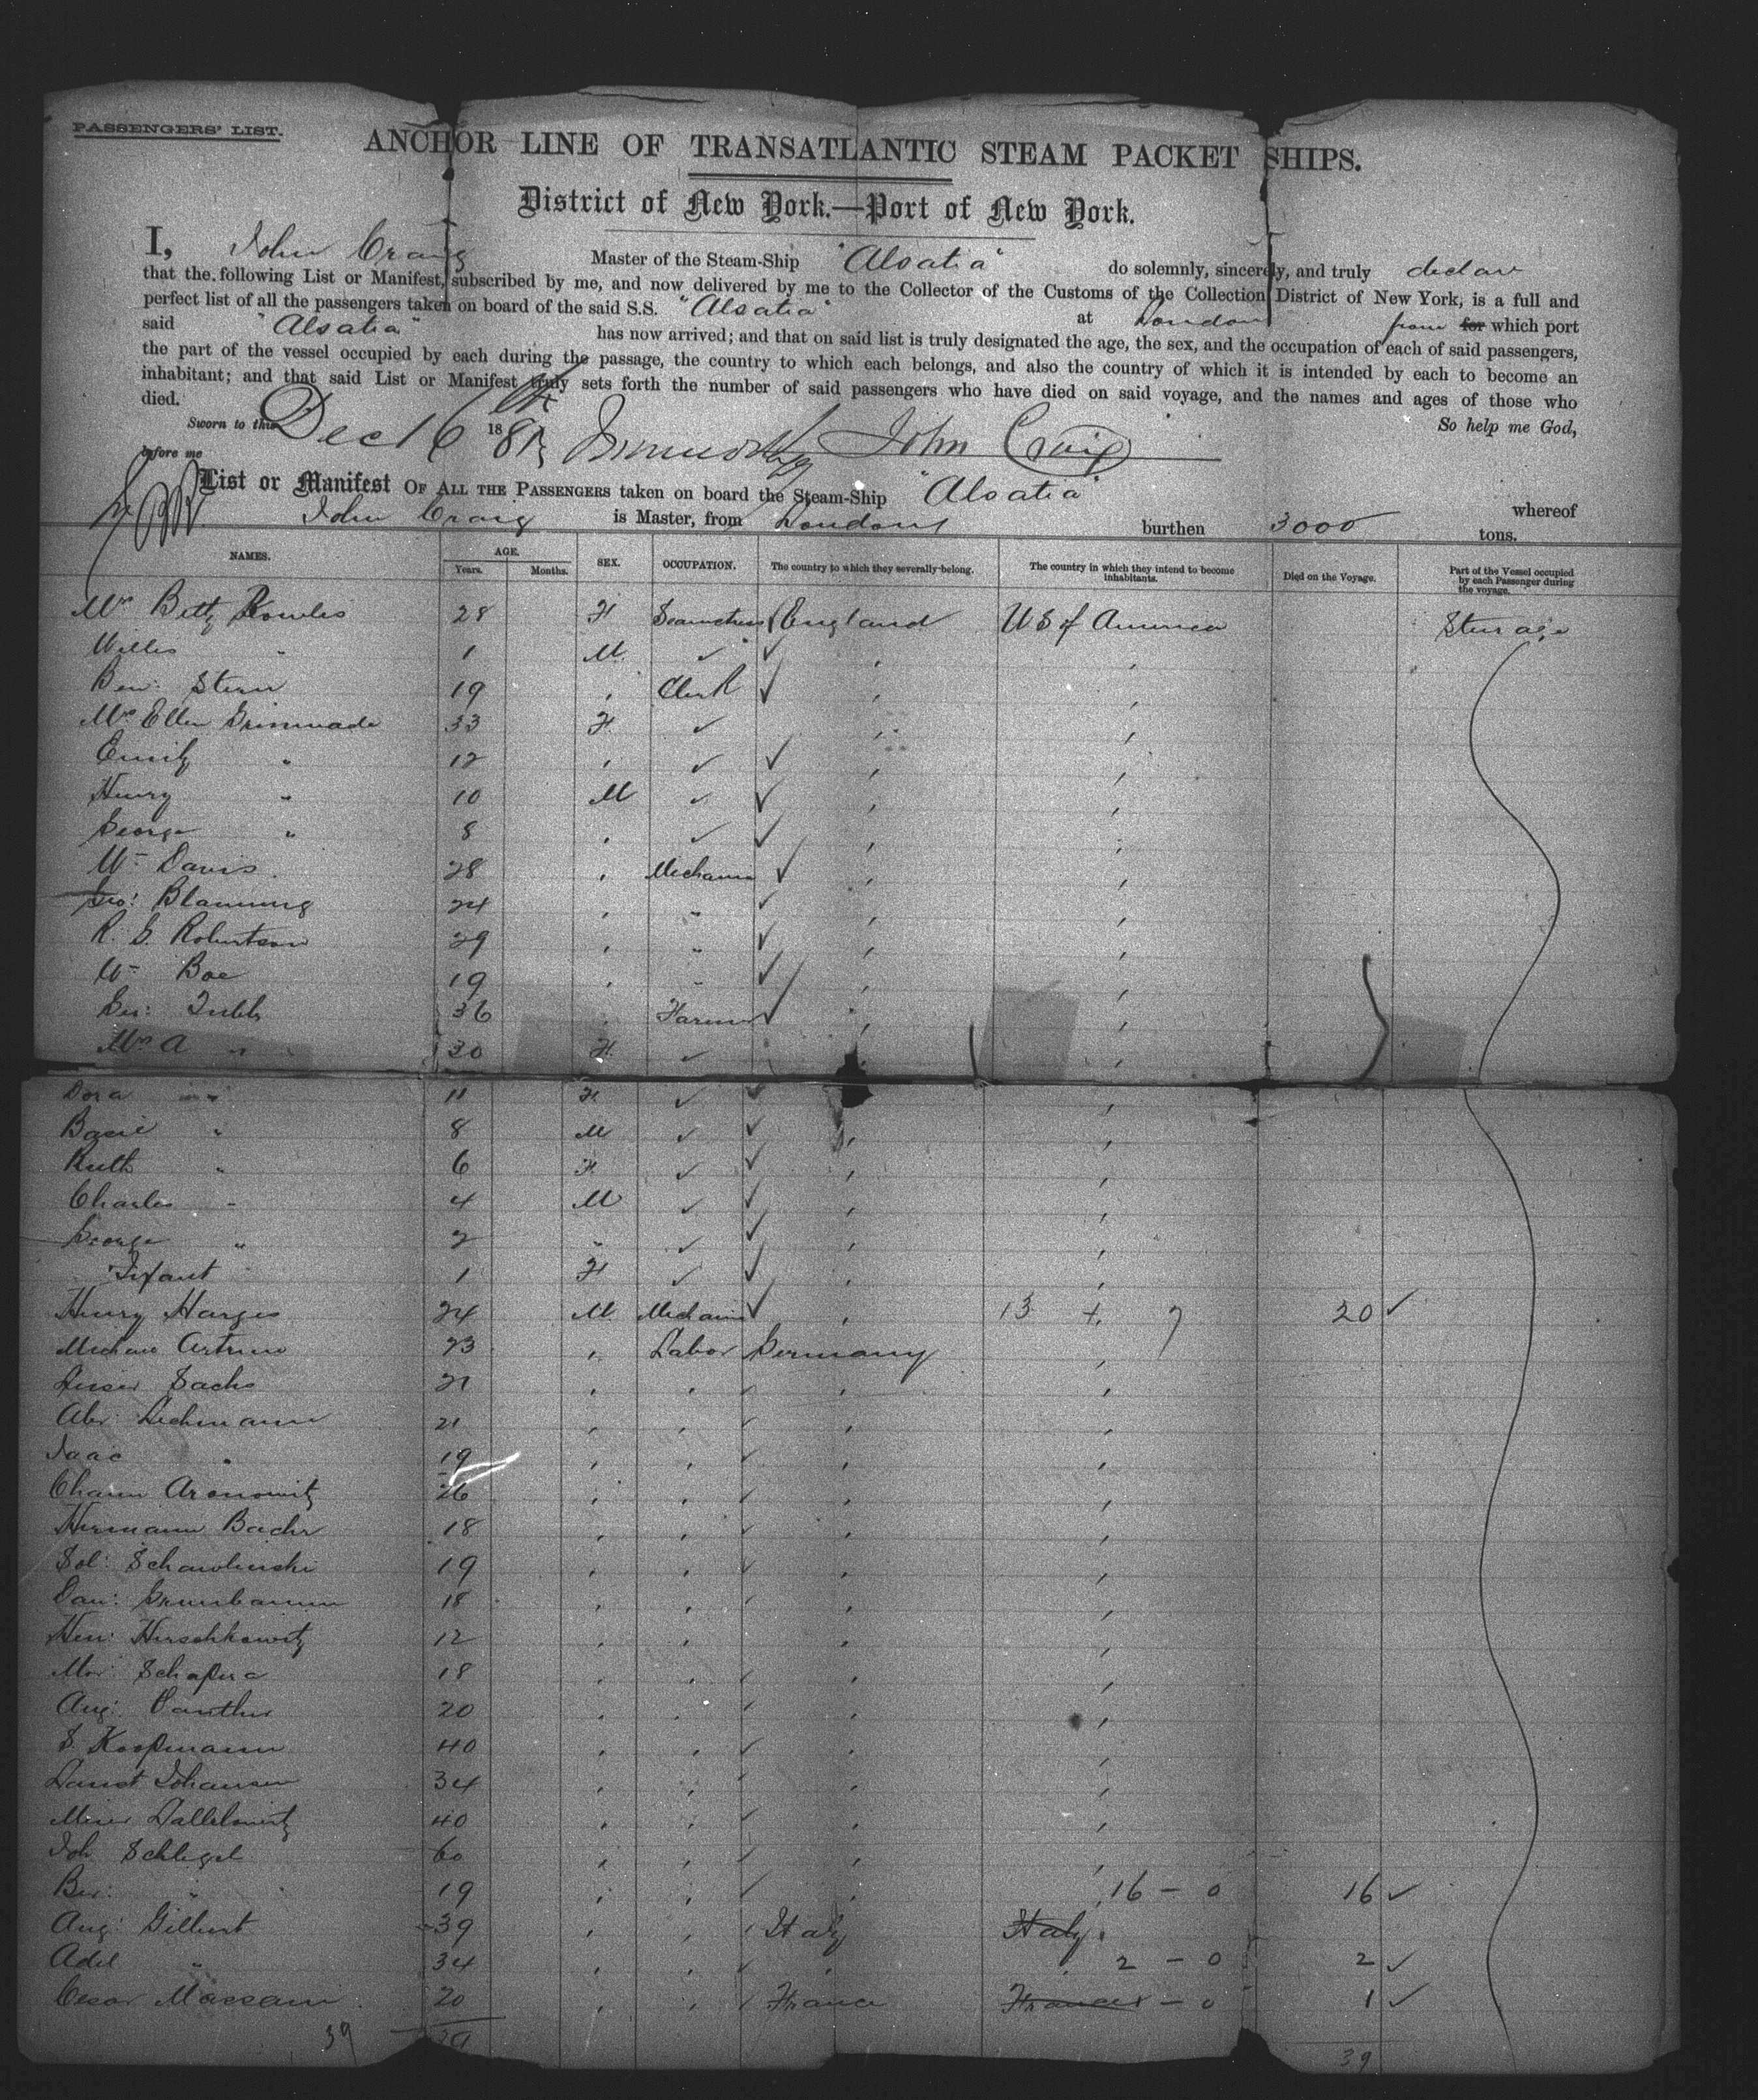 PASSENGERS' LIST.
ANCHOR LINE OF TRANSATLANTIC STEAM PACKET SHIPS.
District of New York.—Port of New York.
I, John Craig Master of the Steam-Ship "Alsatia" do solemnly, sincerely, and truly declare
that the following List or Manifest, subscribed by me, and now delivered by me to the Collector of the Customs of the Collection District of New York, is a full and
perfect list of all the passengers taken on board of the said S.S. "Alsatia" at London from for which port
said "Alsatia" has now arrived; and that on said list is truly designated the age, the sex, and the occupation of each of said passengers,
the part of the vessel occupied by each during the passage, the country to which each belongs, and also the country of which it is intended by each to become an
inhabitant; and that said List or Manifest truly sets forth the number of said passengers who have died on said voyage, and the names and ages of those who
died. So help me God,
Sworn to this Dec 16 188 John Craig
before me
List or Manifest OF ALL THE PASSENGERS taken on board the Steam-Ship "Alsatia" whereof
John Craig is Master, from London burthen 3000 tons.
NAMES. AGE. Years. Months. SEX. OCCUPATION. The country to which they severally belong. The country in which they intend to become inhabitants. Died on the Voyage. Part of the Vessel occupied by each Passenger during the voyage.
Mrs Betty Rowles 28 F Seamstress England US of America Sturage
Willis " 1 M ✓ ✓
Ben: Stern 19 Clerk ✓
Mrs Ellen Grimwade 33 F ✓
Emily " 12 ✓ ✓
Henry " 10 M ✓ ✓
George " 8 ✓ ✓
Wm Davis 28 Mechanic ✓
Geo: Blanning 24 " ✓
R. G. Robertson 29 " ✓
Wm Boe 19 " ✓
Geo: Tubbs 36 Farmer ✓
Mrs A " 30 F ✓
Dora " 11 F ✓ ✓
Basil " 8 M ✓ ✓
Ruth " 6 F ✓ ✓
Charles " 4 M ✓ ✓
George " 2 " ✓ ✓
Infant 1 F ✓ ✓
Henry Harges 24 M Mechanic ✓ 13 + 7 20 ✓
23 Labor Germany
Sachs 21
Abr: Lechmann 21
Isaac " 19
Chaim Aronowitz 26
Hermann Bacher 18
Sol: Schawlinski 19
Dav: Grunbaum 18
Hen: Hirschkowitz 12
Mor: Schapira 18
Aug: Panther 20
S. Koopmann 40
Johansen 34
40
Joh Schlegel 60
Ber: " 19 16 - 0 16 ✓
Aug: Gilbert 39 Italy Italy
Adel " 34 2 - 0 2 ✓
Cesar Massain 20 France France - 0 1 ✓
39 39 39